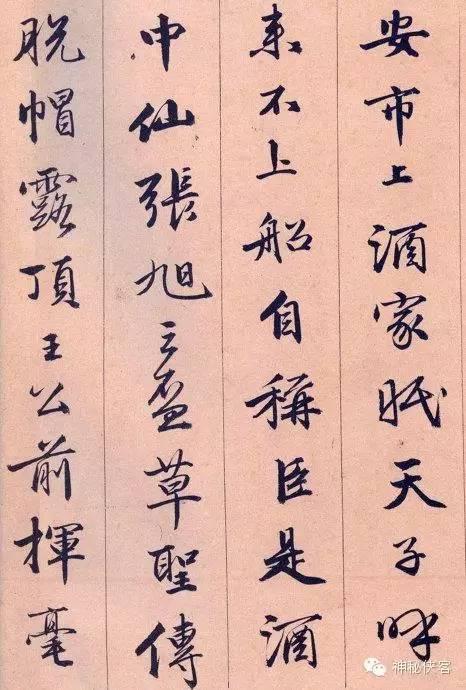 安市上酒家眠天子呼
来不上船自稱臣是酒
中仙張旭三盃草聖傳
脱帽露頂王公前揮毫
神秘侠客